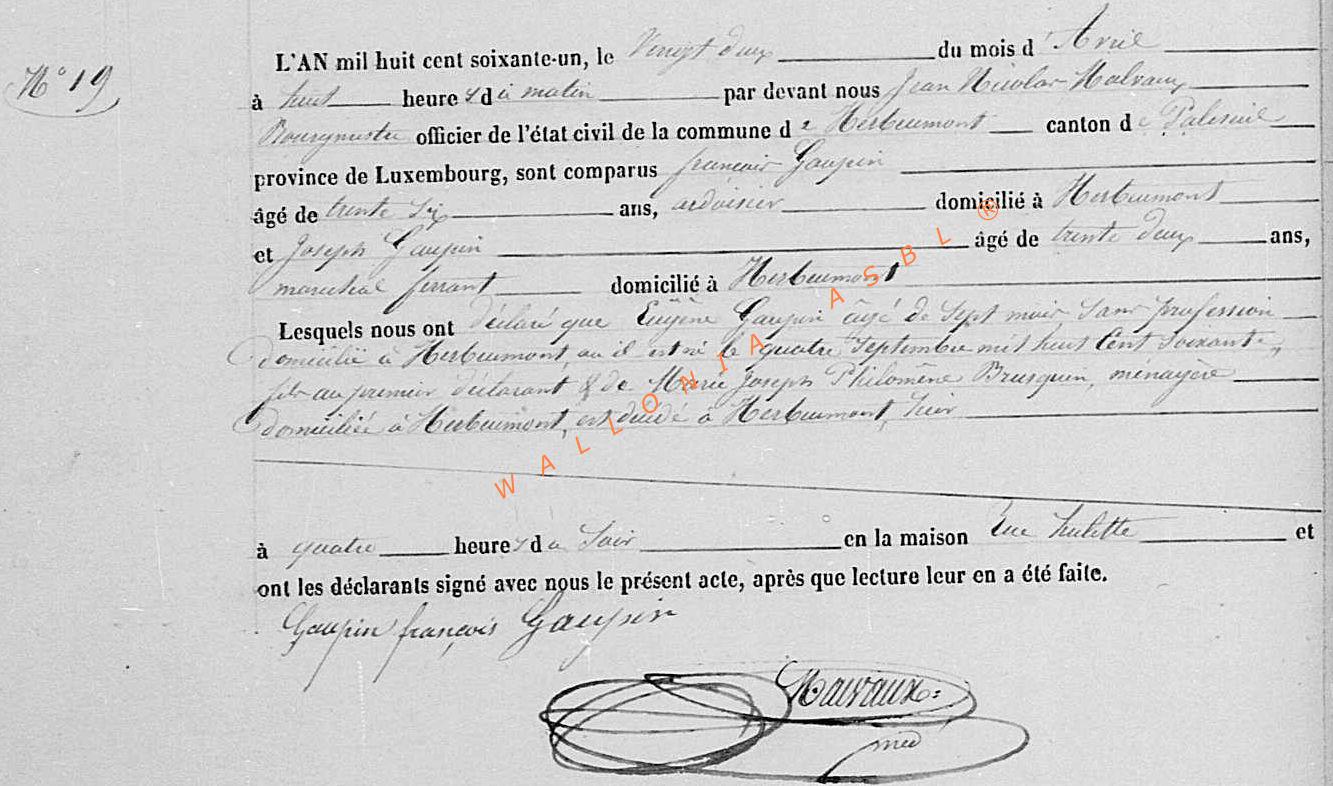 N° 19
L'AN mil huit cent soixante-un, le Vingt deux du mois d'Avril
à huit heures du matin par devant nous Jean Nicolas Malvaux
Bourgmestre officier de l'état civil de la commune de Herbeumont canton de Paliseul
province de Luxembourg, sont comparus françois Gaupin
âgé de trente six ans, ardoisier domicilié à Herbeumont
et Joseph Gaupin âgé de trente deux ans,
maréchal ferrant domicilié à Herbeumont
Lesquels nous ont déclaré que Eugène Gaupin âgé de Sept mois Sans profession
domicilié à Herbeumont, où il est né le quatre Septembre mil huit Cent Soixante,
fils au premier déclarant & de Marie Joseph Philomène Brusquin, ménagère
domiciliée à Herbeumont, est décédé à Herbeumont, hier
à quatre heures du Soir en la maison et
ont les déclarants signé avec nous le présent acte, après que lecture leur en a été faite.
Gaupin françois Gaupin
Malvaux
WALLONIA ASBL ®